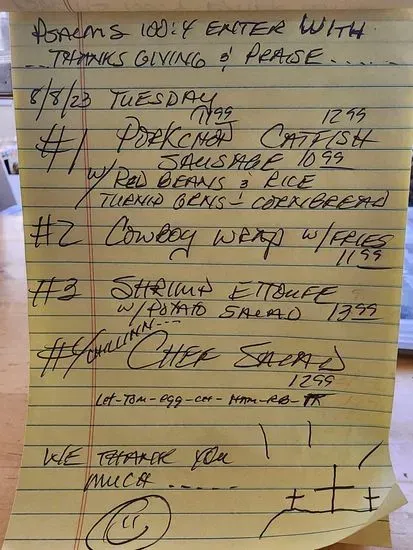 PSALMS 100:4 ENTER WITH
THANKSGIVING & PRAISE.....
8/8/23 TUESDAY
11.99 12.99
#1 PORKCHOP CATFISH
SAUSAGE 10.99
W/ RED BEANS & RICE
TURNIP GRNS - CORNBREAD
#2 COWBOY WRAP W/FRIES
11.99
#3 SHRIMP ETTOUFFE
W/POTATO SALAD 13.99
#4 CHILLINN--- CHEF SALAD
12.99
LET-TOM-EGG-CH-HAM-RB-TK
WE THANK YOU
MUCH.....